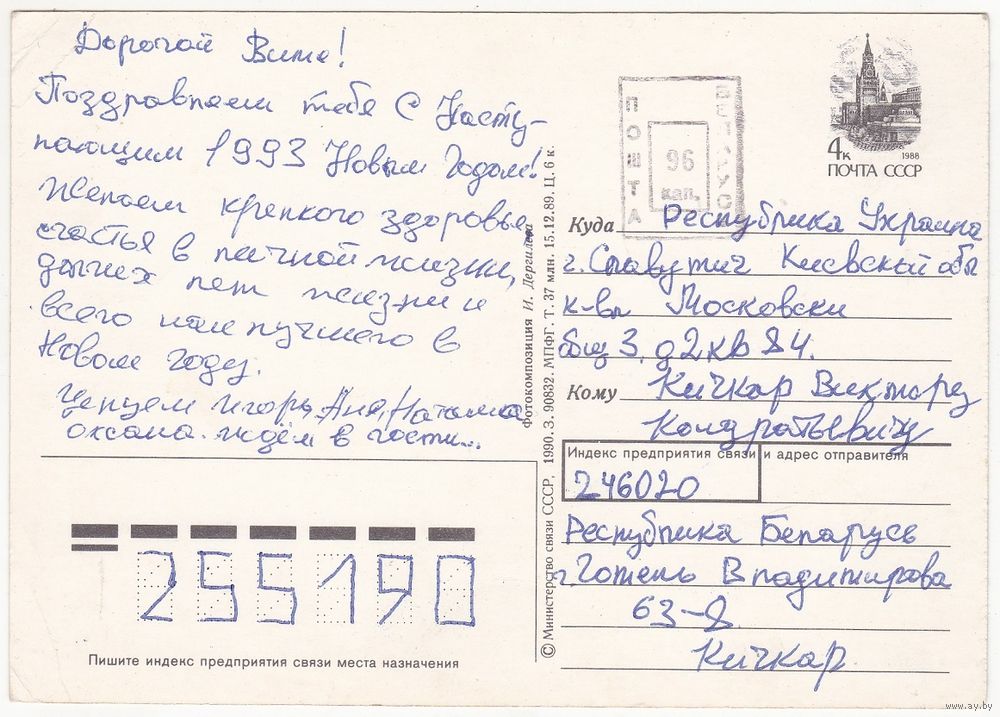 Дорогой Витя!
Поздравляем тебя с Насту-
пающим 1993 Новым Годом!
Желаем крепкого здоровья
счастья в личной жизни,
долгих лет жизни и
всего наилучшего в
Новом году.
Целуем Игорь, Аня, Наташа
Оксана. ждём в гости...
Пишите индекс предприятия связи места назначения
255190
© Министерство связи СССР, 1990. З. 90832. МПФГ. Т. 37 млн. 15.12.89. Ц. 6 к.
Фотокомпозиция И. Дергилева
ПОШТА
96
кап.
БЕЛАРУСЬ
4к
1988
ПОЧТА СССР
Куда Республика Украина
г. Славутич Киевской обл
к-вл Московски
общ 3, д 2 кв 84.
Кому Кичкар Виктору
Кондратьевичу
Индекс предприятия связи и адрес отправителя
246020
Республика Беларусь
г. Гомель Владимирова
63-8
Кичкар
www.ay.by